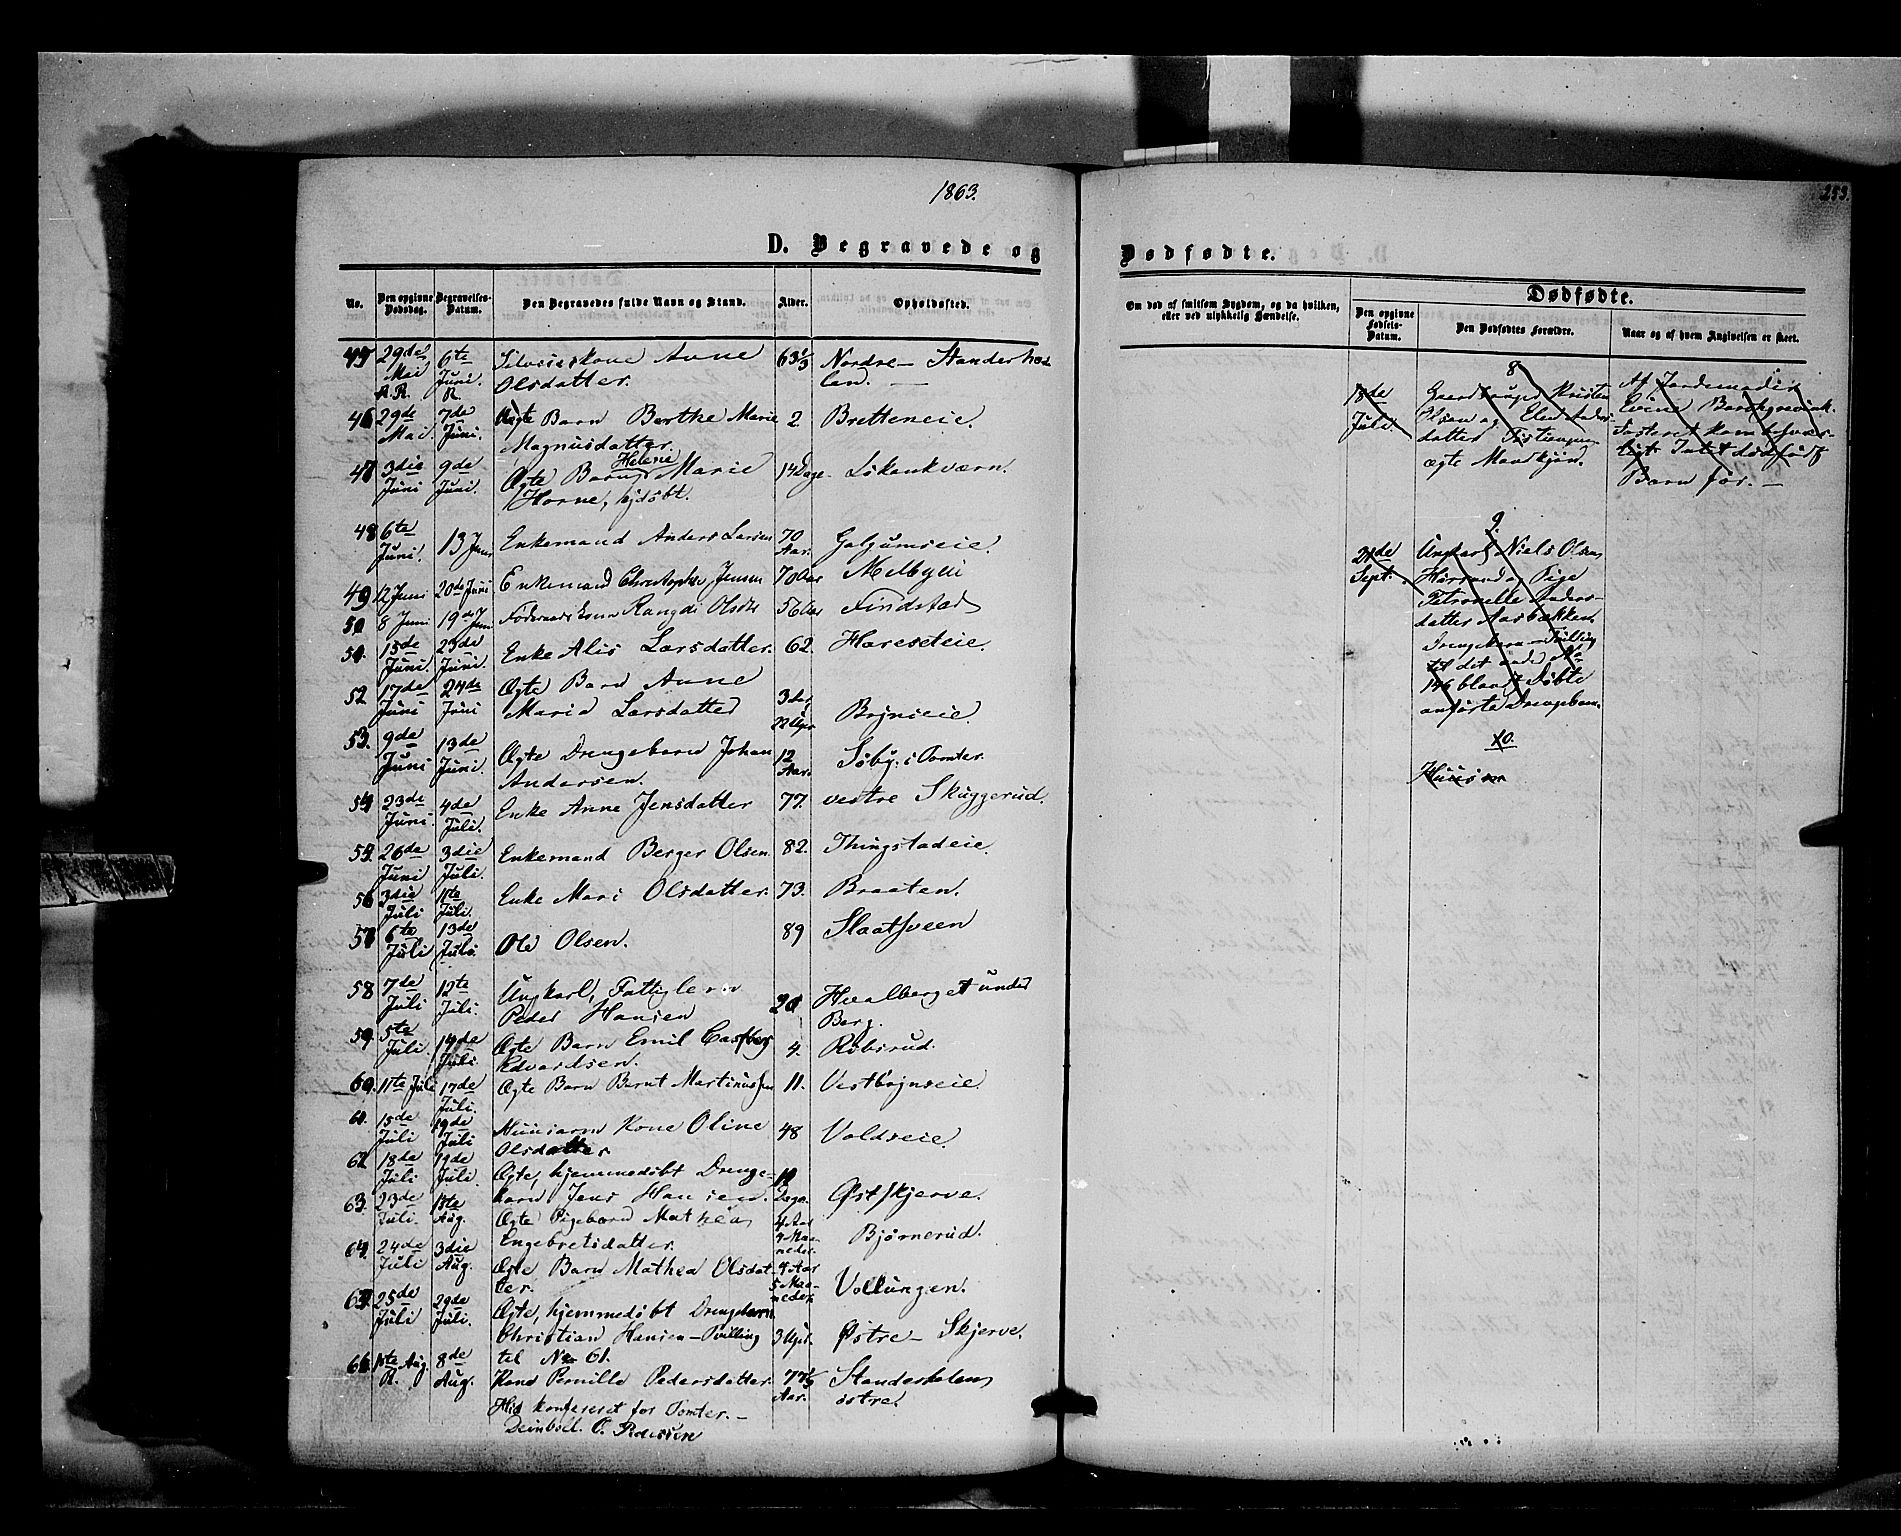 1863.
253.
D. Begravede og
Dødfødte.
No.
Den opgivne Dødsdag.
Begravelses-Datum.
Den Begravedes fulde Navn og Stand.
Alder.
Opholdssted.
Om død af smitsom Sygdom, og da hvilken, eller ved ulykkelig Hændelse.
Dødfødte.
Den opgivne Fødsels-Datum.
Den Dødfødtes Forældre.
Naar og af hvem Angivelsen er skeet.
45 29de Mai 6te Juni Anne Olsdatter. 63 1/3 Nordre-
46 29de Mai 7de Juni. Ægte Barn Berthe Marie Magnusdatter. 2 Bretteneie.
47 3die Juni 9de Juni. Ægte Barn Helene Marie hjdøbt. 14 Dage
48 6te Juni. 13 Juni Enkemand Anders Larsen 70 Aar.
49 12 Juni 20de Juni Enkemand Christopher Jensen 70 Aar Melbyeie
50 8 Juni 19de Juni Rangdi Olsdtr 56 Aar Findstad
51. 15de Juni. 23de Juni. Enke Alis Larsdatter. 62. Hareseteie.
52 17de Juni 24de Juni Ægte Barn Anne Maria Larsdatter 3 Aar
53. 9de Juni 13de Juni. Ægte Drengebarn Johan Andersen. 12 Aar. Søby i Tomter.
54 23de Juni. 4de Juli. Enke Anne Jensdatter 77. vestre Skuggerud.
55. 26de Juni 3die Juli. Enkemand Berger Olsen. 82. Thingstadeie.
56 3die Juli 11te Juli. Enke Mari Olsdatter. 73. Braaten.
57 6te Juli 13de Juli. Ole Olsen. 89 Slaatsveen
58 7de Juli 12te Juli. Ungkarl, Fattiglem Peder Hansen 20 Hvalberget under Berg.
59. 5te Juli. 14de Juli. Ægte Barn Emil Castberg Edvardsen. 4. Røbsrud.
60. 11te Juli 17de Juli. Ægte Barn Bernt Martinussen 11. Vestbyneie.
61. 15de Juli 19de Juli Kone Oline Olsdatter 48 Voldseie.
62 18de Juli 19de Juli. Ægte, hjemmedøbt Drengebarn Jens Hansen. Dage. Østskjerve.
63. 23de Juli. 1ste Aug. Ægte Pigebarn Mathea Engebretsdatter. 4 Aar Maaneder. Bjørnerud.
64. 24de Juli 3die Aug. Ægte Barn Mathea Olsdatter. 4 Aar 5 Maaneder Vollungen.
65. 25de Juli 29de Juli. Ægte, hjemmedøbt Drengebarn Christian Hansen - Tvilling til No 61. 3 Uger. Østre-Skjerve.
66. 1ste Aug. 8de Aug. Kone Pernille Pedersdatter. 77 1/3 Aar. østre.
Hid konfereret for Tomter. -
O. Pedersen
8
18de Juli. Gaardbruger Kristen Olsen og Elen Andersdatter ægte Mandkjøn. Af Jordemoder Barn før. -
9.
21de Sept. Ungkarl Niels Olsen og Pige Petronelle Andersdatter Aasbækken. Drengebarn - Tvilling til det under No 146 blandt Døbte anførte Drengebarn.
10.
Huusm